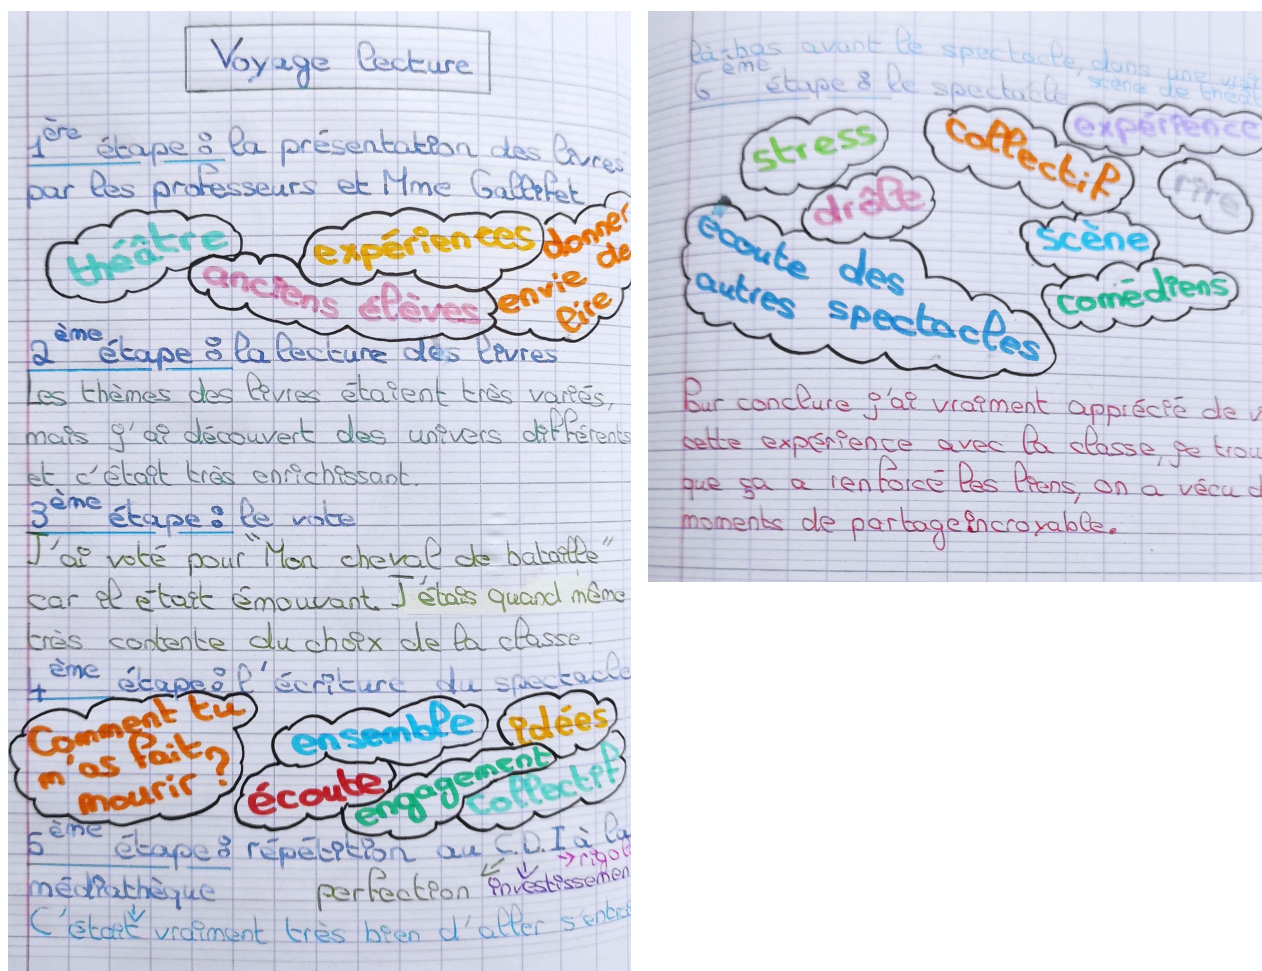 Voyage lecture
1ère étape : la présentation des livres
par les professeurs et Mme Gallifet
théâtre
expériences
donner
envie de
lire
anciens élèves
2ème étape : la lecture des livres
Les thèmes des livres étaient très variés,
mais j'ai découvert des univers différents
et c'était très enrichissant.
3ème étape : le vote
J'ai voté pour "Mon cheval de bataille"
car il était émouvant. J'étais quand même
très contente du choix de la classe.
4ème étape : l'écriture du spectacle
Comment tu
m'as fait
mourir ?
ensemble
idées
écoute
engagement
collectif
5ème étape : répétition au C.D.I à la
médiathèque perfection investissemen
C'était vraiment très bien d'aller
là-bas avant le spectacle, dans une
scène de
6ème étape : le spectacle
stress
collectif
expérience
drôle
rire
écoute des
autres spectacles
scène
comédiens
Pour conclure j'ai vraiment apprécié de
cette expérience avec la classe, je
que ça a renforcé les liens, on a vécu
moments de partage incroyable.